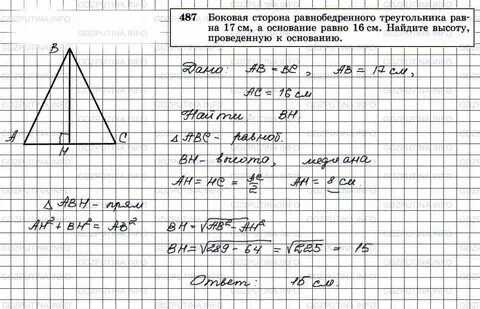 487 Боковая сторона равнобедренного треугольника рав-
на 17 см, а основание равно 16 см. Найдите высоту,
проведенную к основанию.
Дано: AB = BC, AB = 17 см,
AC = 16 см
Найти: BH
△ ABC - равноб.
BH - высота, медиана
AH = HC = AC/2 AH = 8 см
B
A
H
C
△ ABH - прям
AH² + BH² = AB²
BH = √AB² - AH²
BH = √289 - 64 = √225 = 15
Ответ: 15 см.